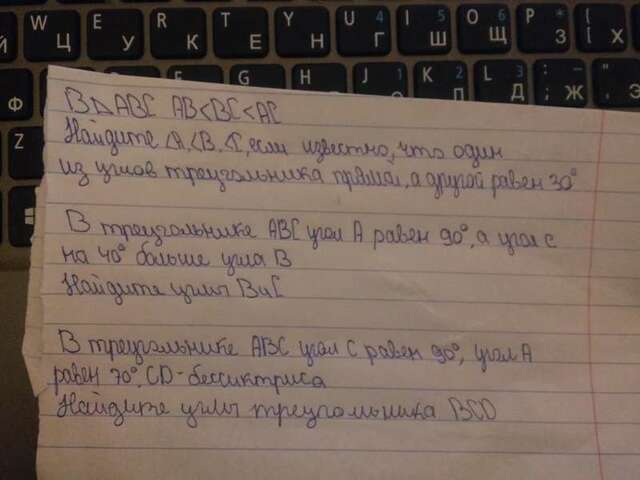 W E R T Y U 4 I 5 O 6 P [ {
Ц У К Е Н Г Ш Щ З Х
F G H J 1 K 2 L 3 : ; "
Ф Л Д Ж Э
Z
В △ ABC AB<BC<AC
Найдите ∠A,<B,<C, если известно, что один
из углов треугольника прямой, а другой равен 30°
В треугольнике ABC угол A равен 90°, а угол C
на 40° больше угла B
Найдите углы B и C
В треугольнике ABC угол C равен 90°, угол A
равен 70°, CD-бессиктриса
Найдите углы треугольника BCD